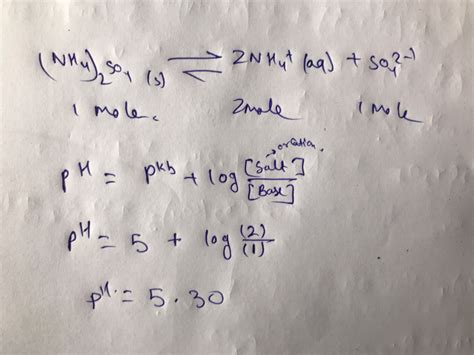 (NH4)2SO4 (s) ⇌ 2NH4+ (aq) + SO4 2-)
1 mole. 2mole 1 mole
→ or cation.
pH = pkb + log [Salt]/[Base]
pH = 5 + log (2)/(1)
pH. = 5.30